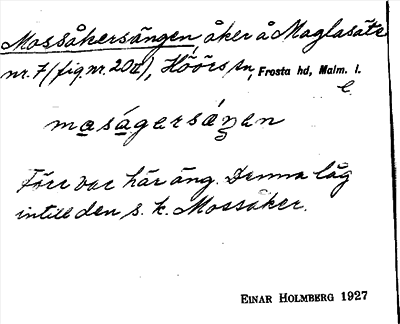 Mossåkersängen åker å Maglasäte
nr. 7 (fig. nr. 20a), Höörs sn, Frosta hd, Malm. l.
maságersáŋen
Förr var här äng. Denna låg
intill den s. k. Mossåker.
EINAR HOLMBERG 1927